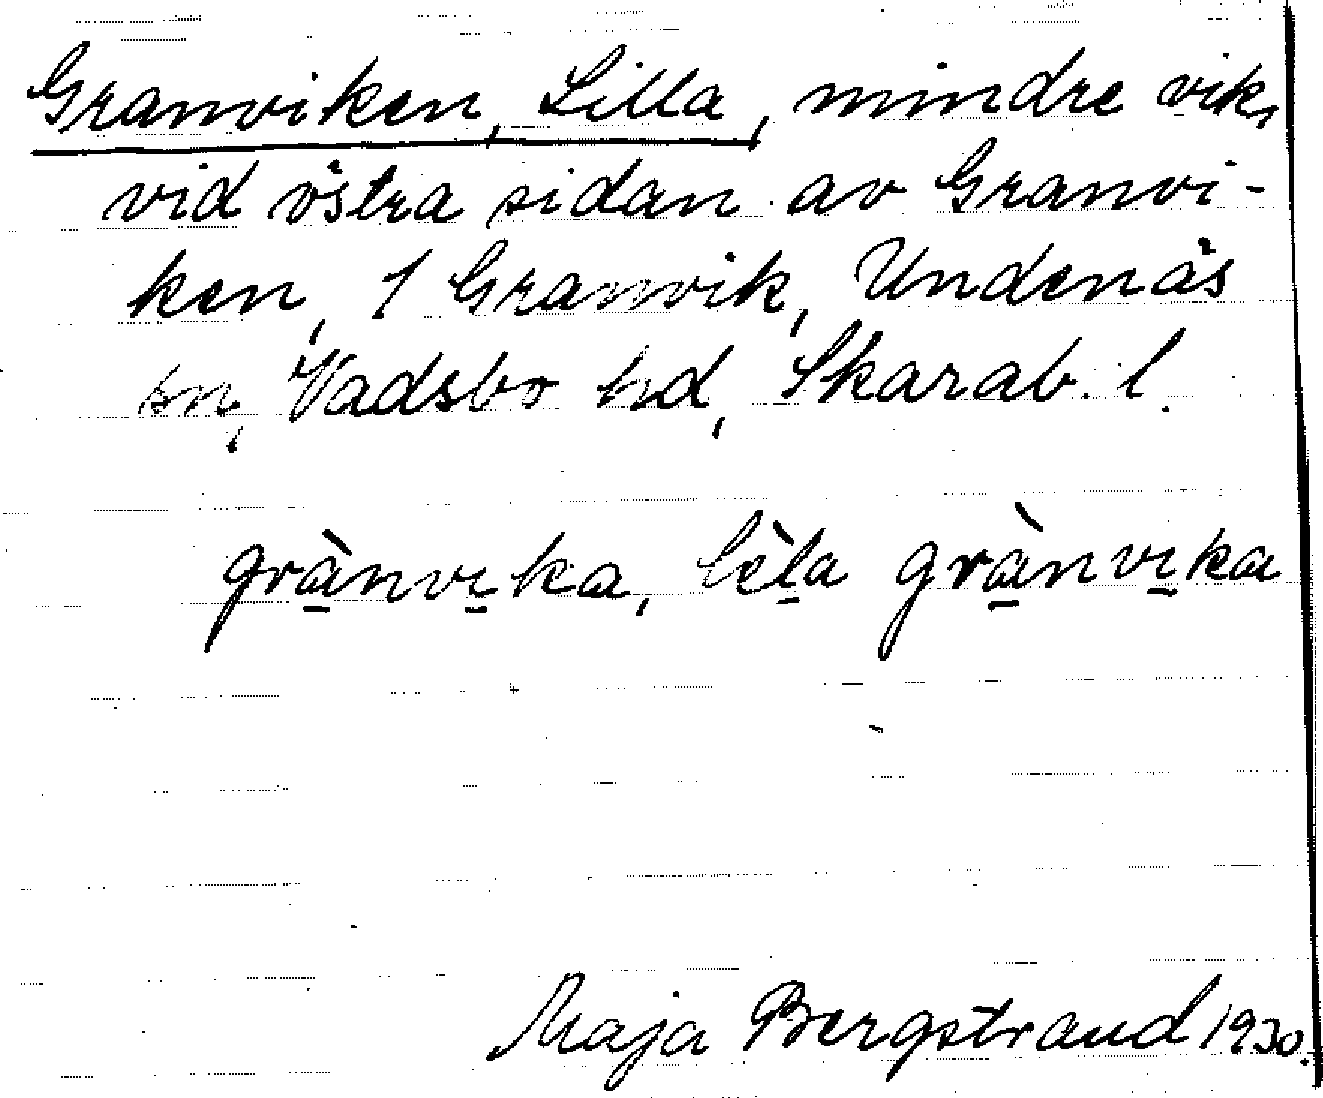 Granviken, Lilla, mindre vik,
vid östra sidan av Granvi-
ken, 1 Granvik, Undenäs
sn, Vadsbo hd, Skarab. l.
grà̱nvi̱ka, lèḻa grà̱nvi̱ka
Maja Bergstrand 1930.